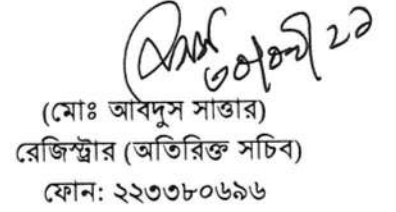 ৩০/০৯/২১
(মোঃ আবদুস সাত্তার)
রেজিস্ট্রার (অতিরিক্ত সচিব)
ফোন: ২২৩৩৮০৬৯৬